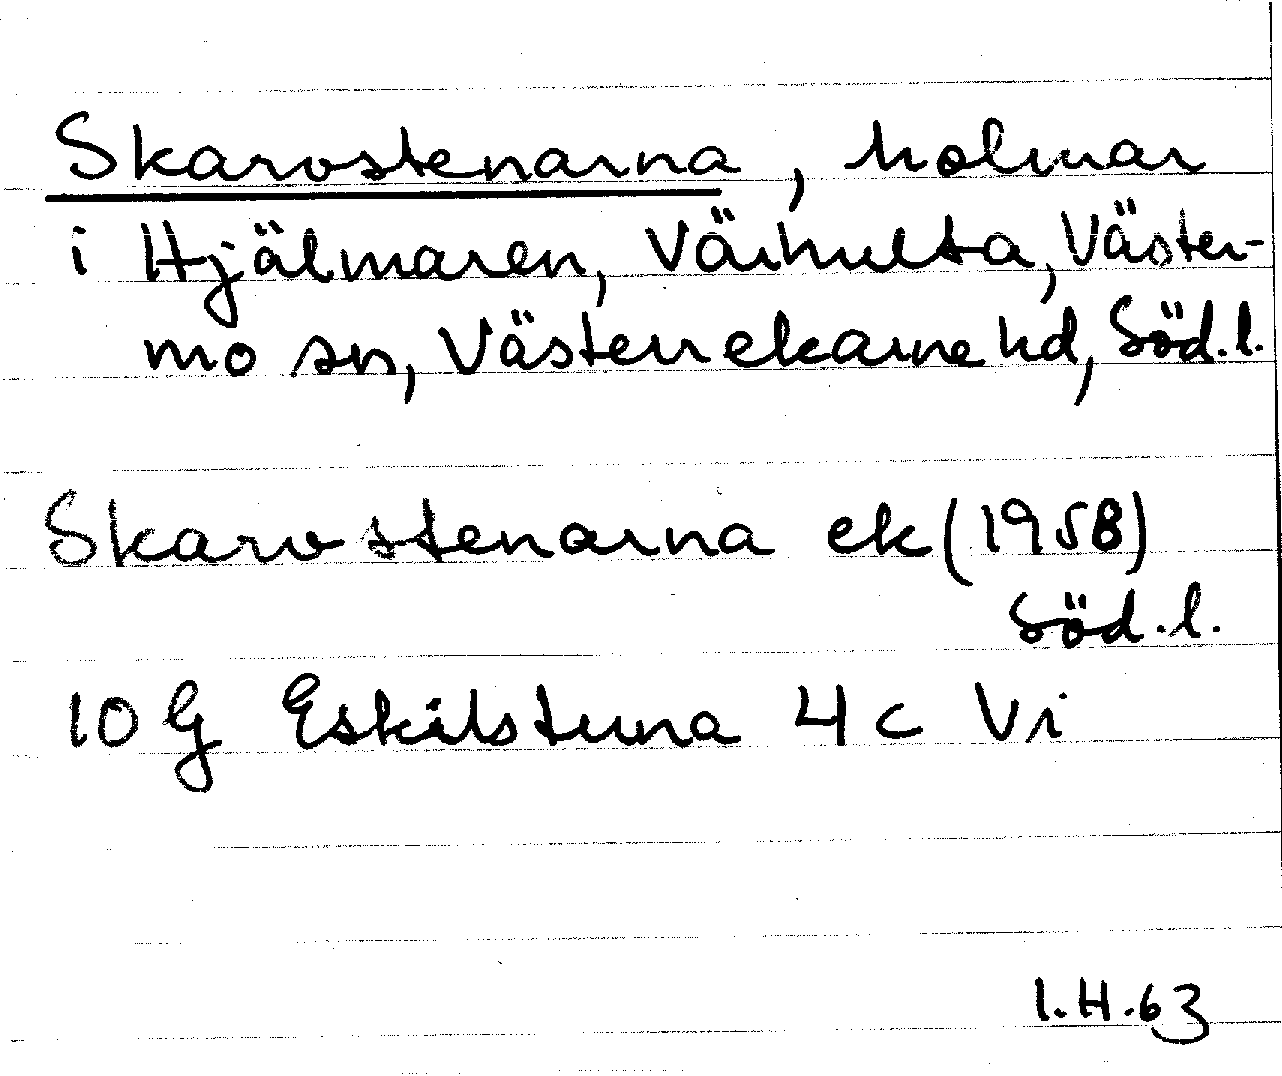 Skarvstenarna, holmar
i Hjälmaren, Värhulta, Väster-
mo sn, Västerrekarne hd, Söd.l.
Skarvstenarna ek (1958)
Söd.l.
10 G Eskilstuna 4 c Vi
I.H.63